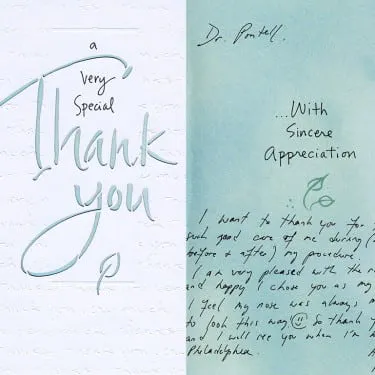 a
Very
Special
Thank
you
Dr. Pontell.
...With
Sincere
Appreciation
I want to thank you for
such good care of me during
before & after) my procedure.
I am very pleased with the
and happy I chose you as my
I feel my nose was always
to look this way! So thank
and I will see you when I'm
Philadelphia.